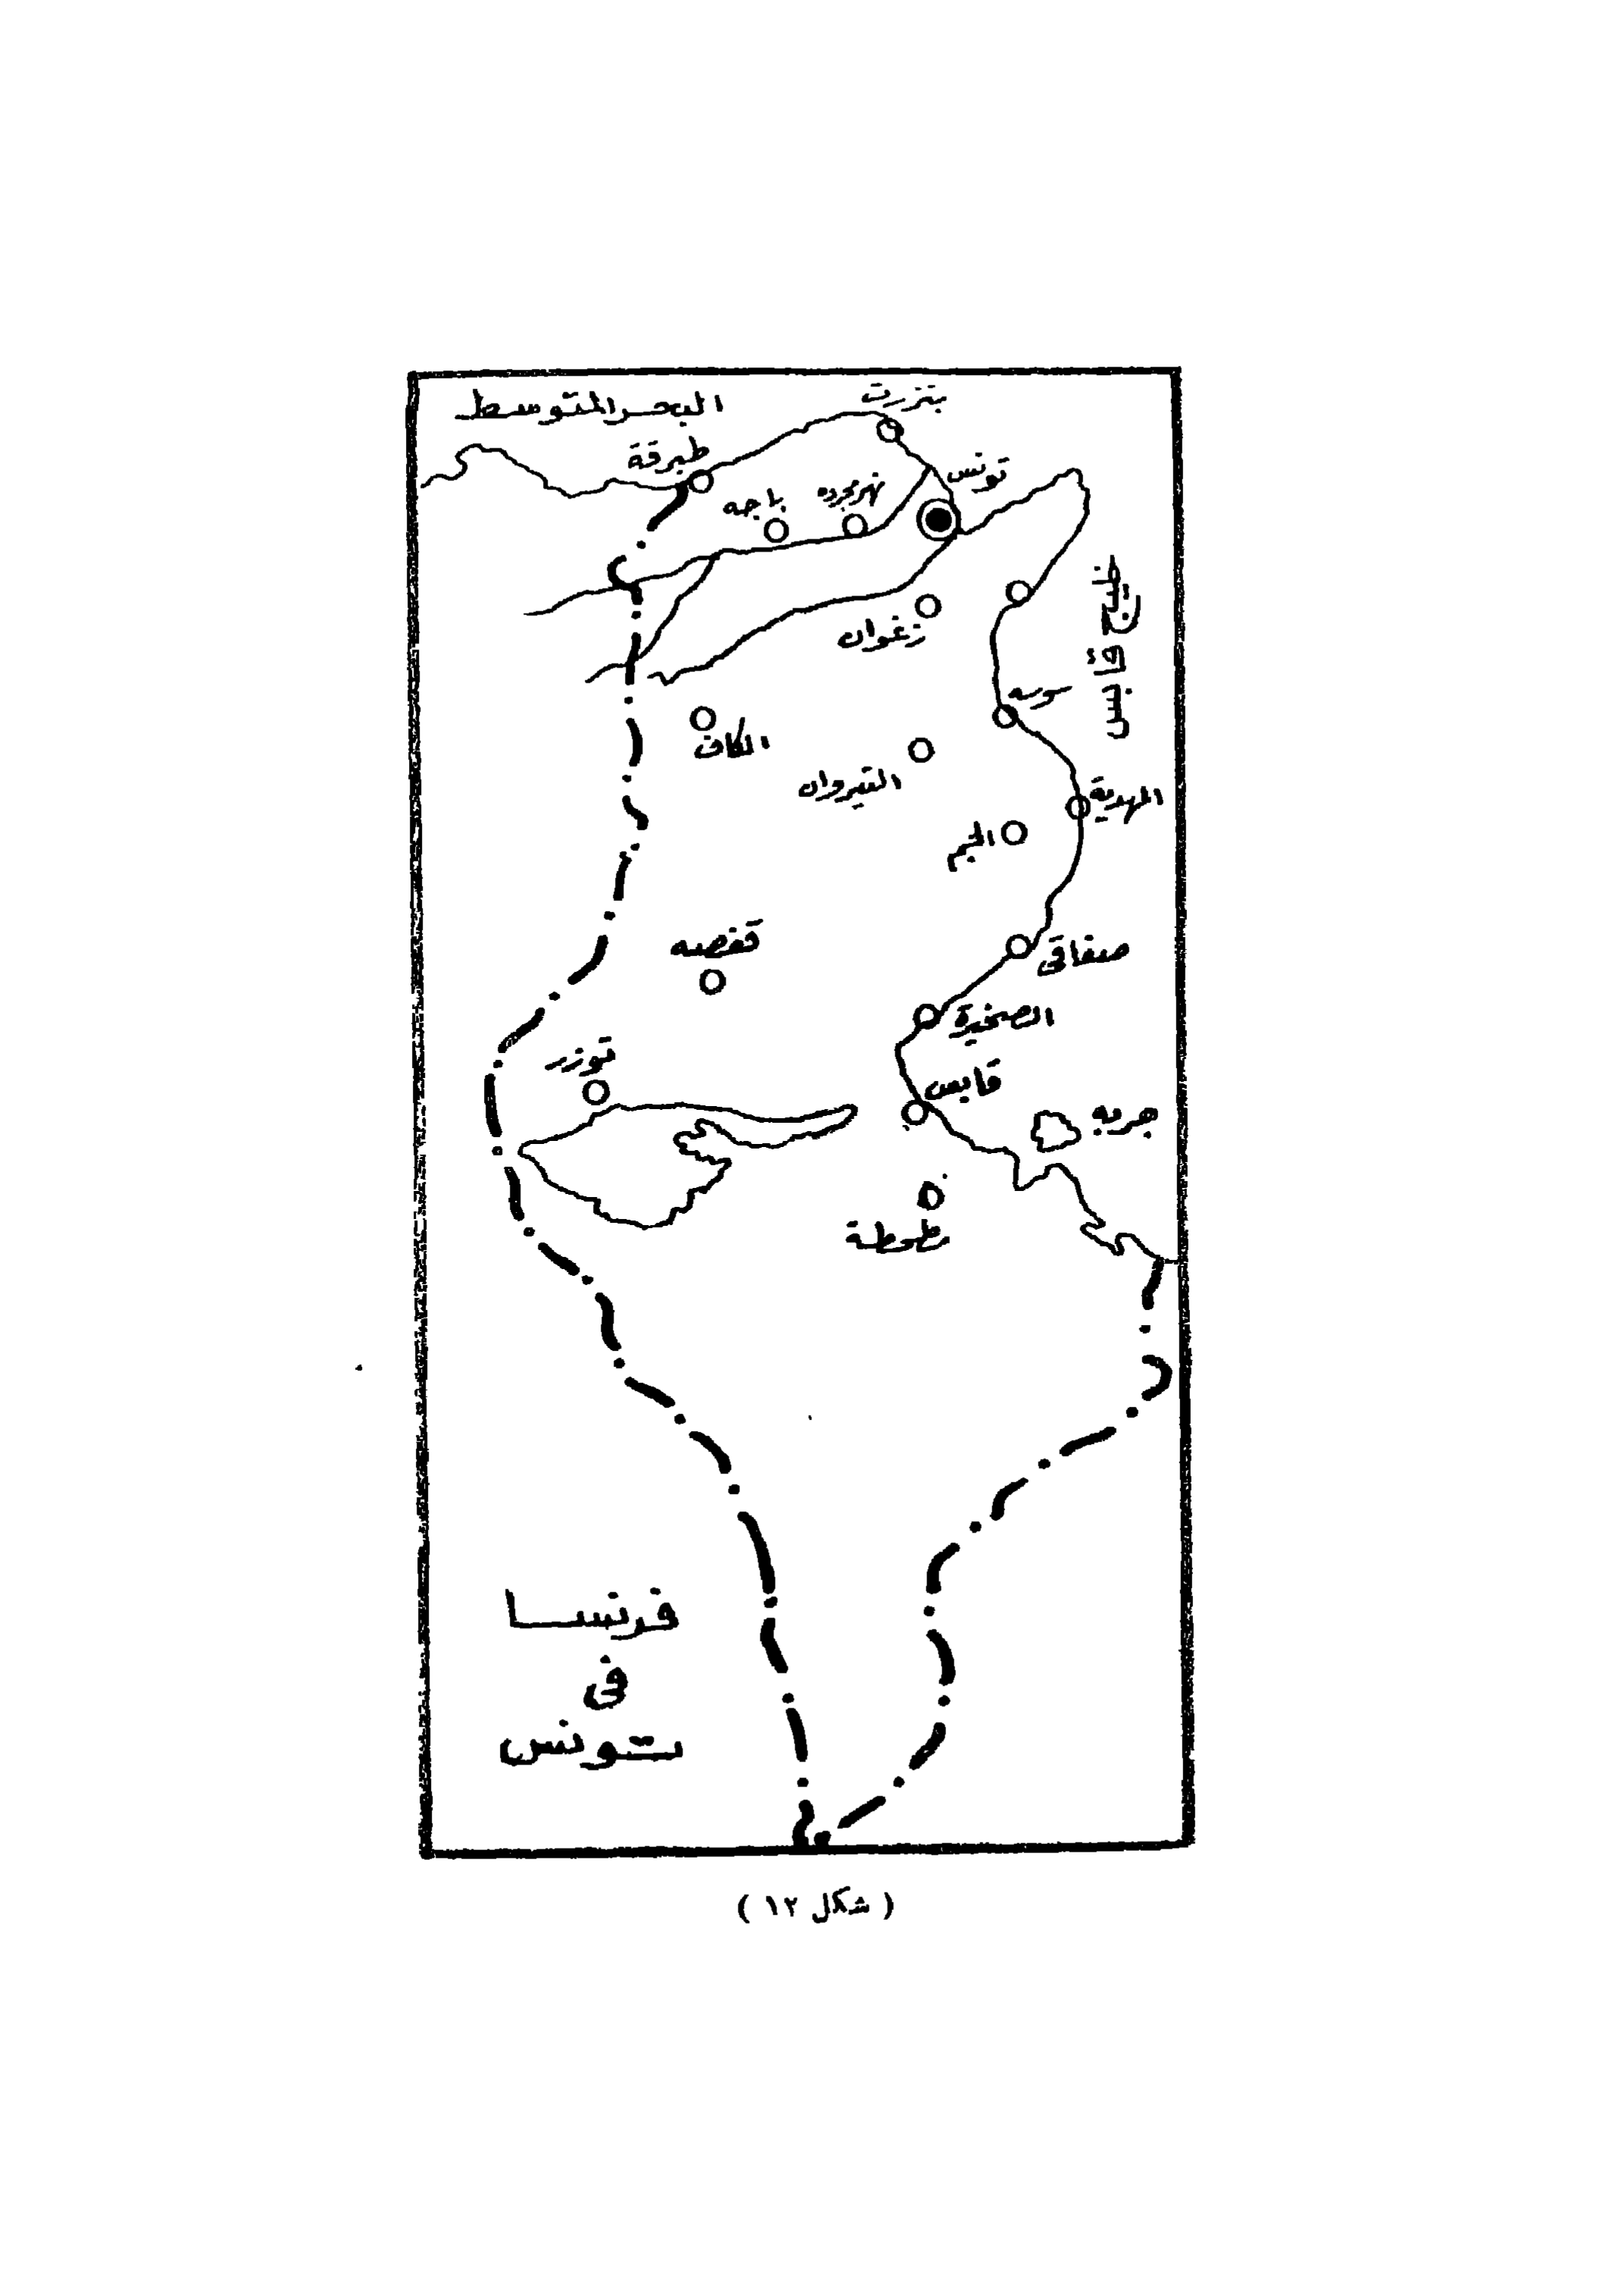 البحر المتوسط
بنزرت
طبرقة
تونس
باجه
نهر مجرده
خليج قابس
زغوان
سوسه
الكاف
القيروان
المهدية
الجم
قفصه
صفاقس
الصخيرة
توزر
قابس
جربه
فرنسا
في
تونس
( شكل ١٢ )